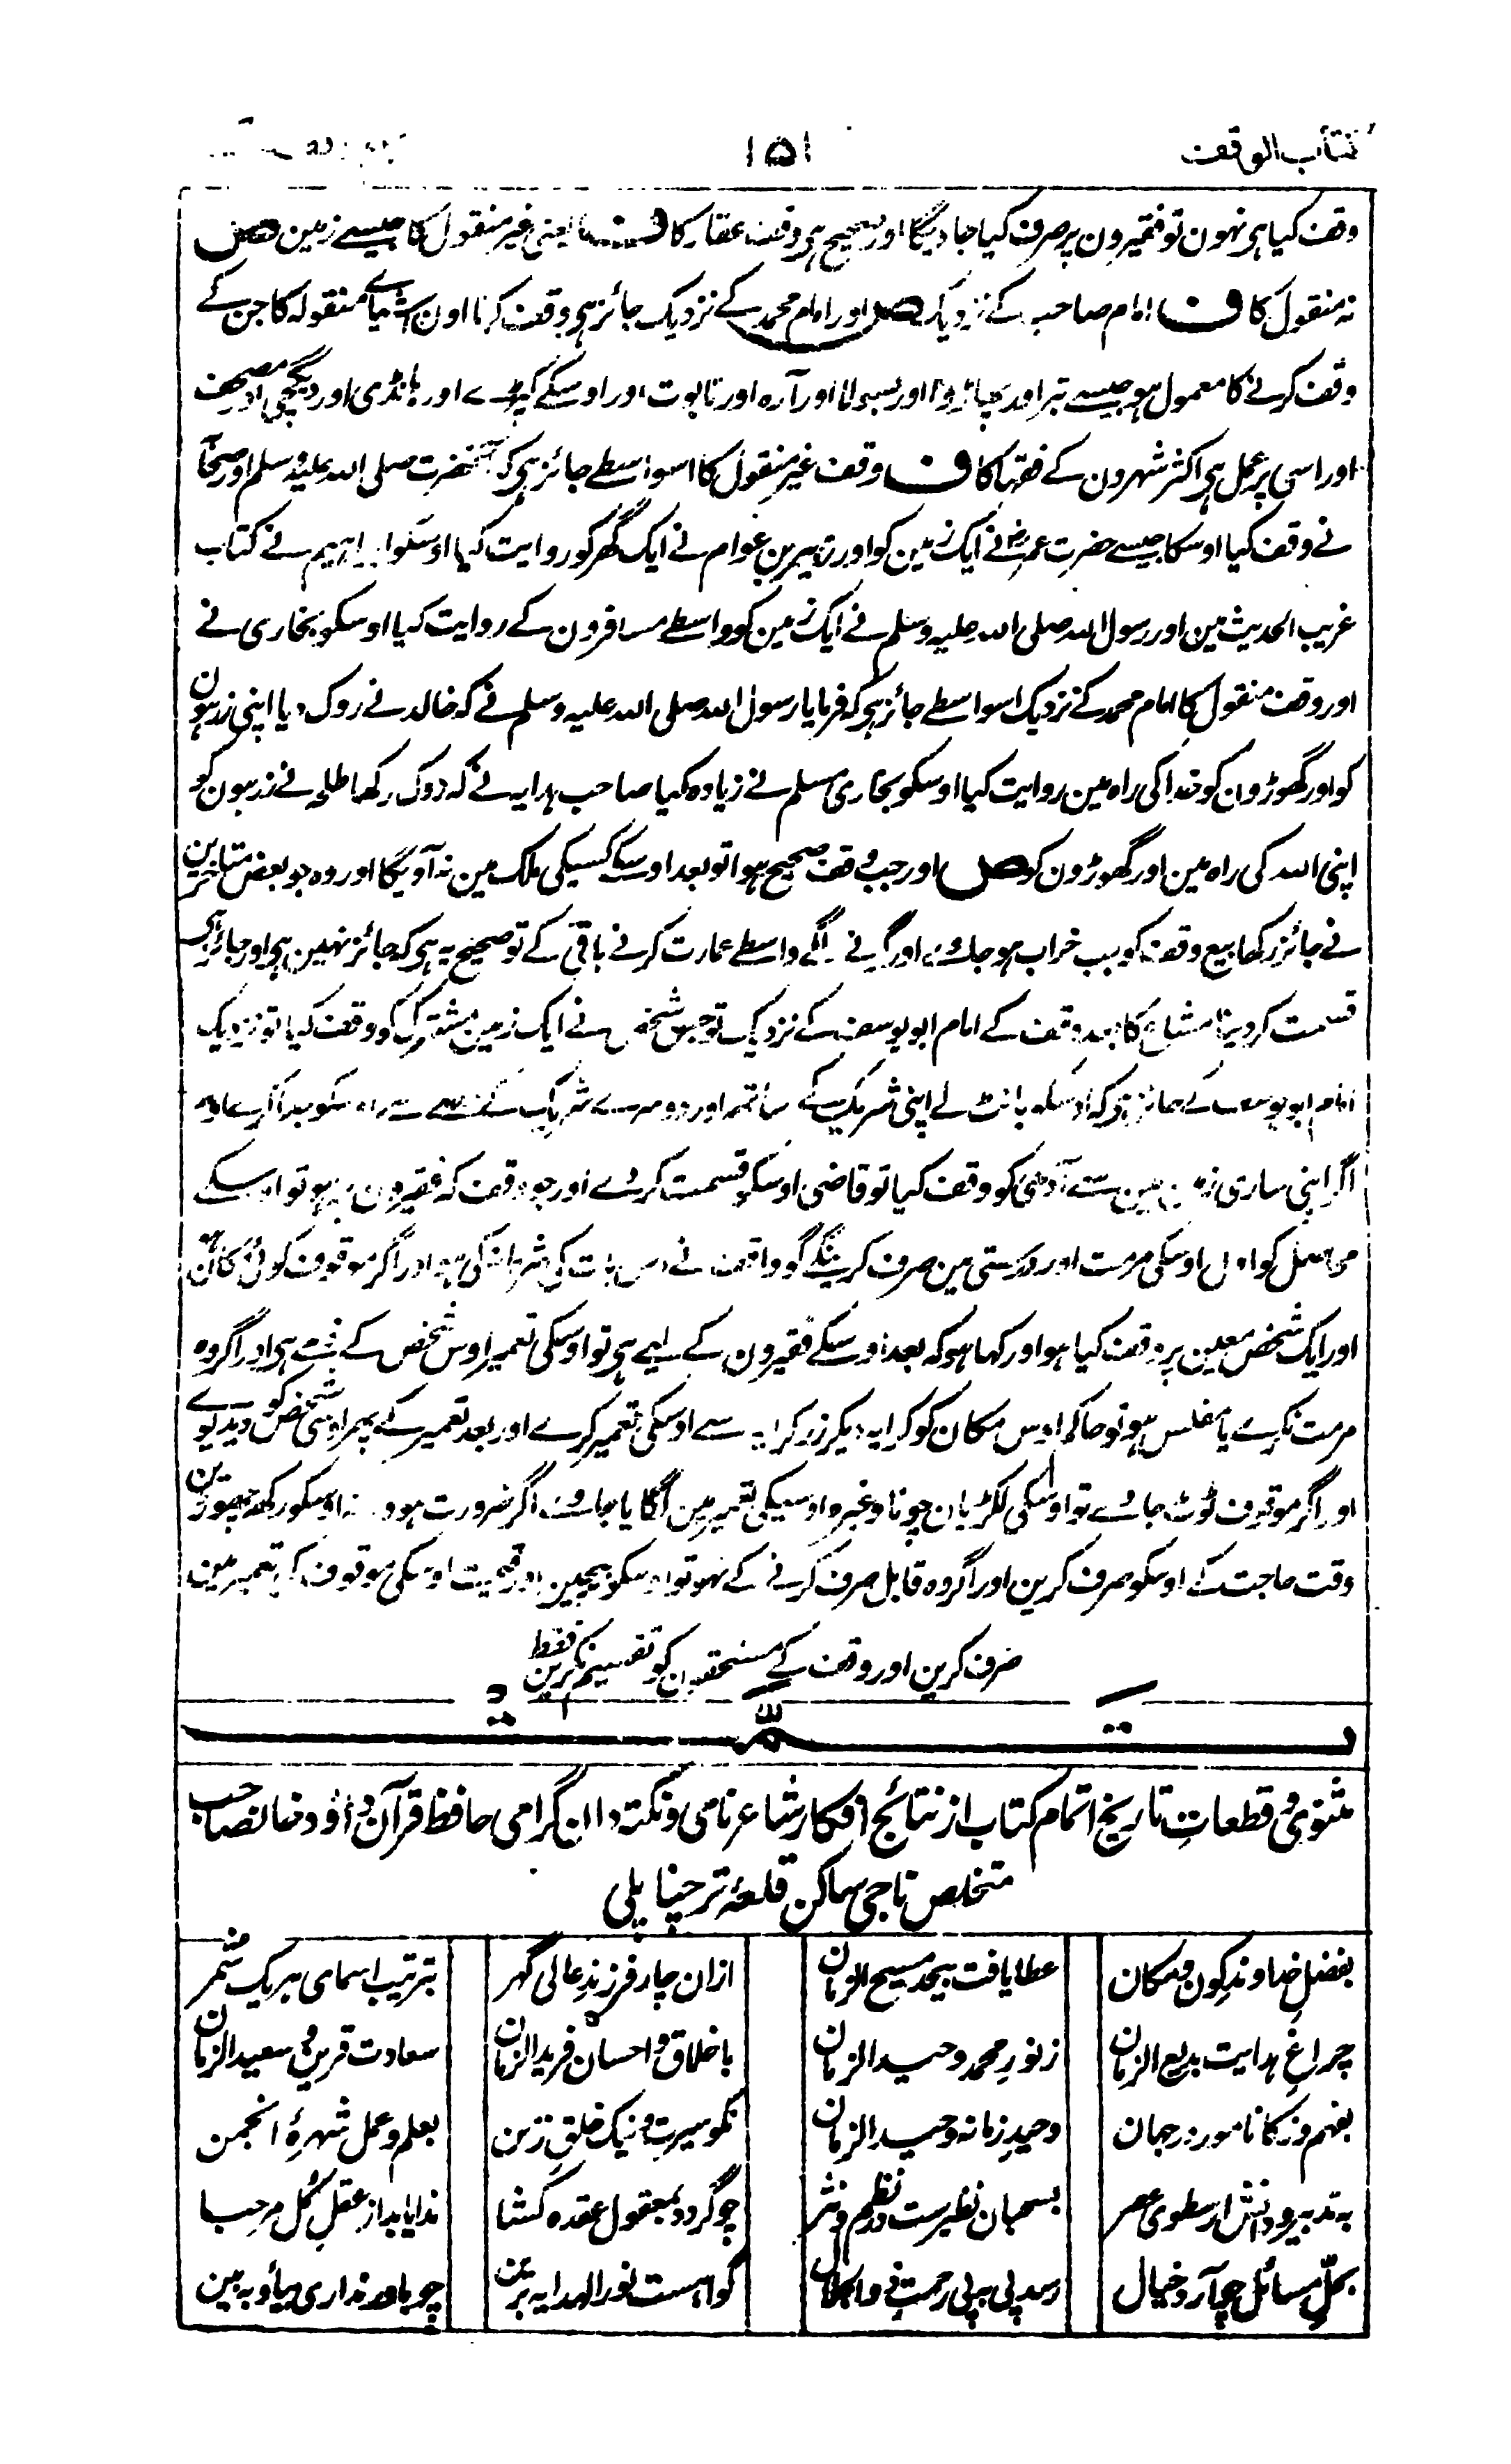 کتاب الوقف
۱۵۱
وقف کیا ہی نہون تو فقیرون پر صرف کیا جاویگا اور صحیح ہی وقف عقار کا ف یعنی غیر منقول کا جیسے زمین ص
نہ منقول کا ف امام صاحب کے نزدیک ص اور امام محمد کے نزدیک جائز ہی وقف کرنا اون اشیاے منقولہ کا جن کے
وقف کرنے کا معمول ہو جیسے تبر اور پھاؤڑا اور بسولا اور آرہ اور تابوت اور اوسکے کپڑے اور ہانڈی اور دیگچی اور مصحف
اور اسی پر عمل ہی اکثر شہرون کے فقہا کا ف وقف غیر منقول کا اسواسطے جائز ہی کہ آنحضرت صلی اللہ علیہ وسلم اور صحابہ
نے وقف کیا اوسکا جیسے حضرت عمرؓ نے ایک زمین کو اور زبیر بن عوام نے ایک گھر کو روایت کیا اوسکو ابراہیم نے کتاب
غریب الحدیث مین اور رسول اللہ صلی اللہ علیہ وسلم نے ایک زمین کو واسطے مسافرون کے روایت کیا اوسکو بخاری نے
اور وقف منقول کا امام محمد کے نزدیک اسواسطے جائز ہی کہ فرمایا رسول اللہ صلی اللہ علیہ وسلم نے کہ خالد نے روک دیا اپنی زرہون
کو اور گھوڑون کو خدا کی راہ مین روایت کیا اوسکو بخاری مسلم نے زیادہ کیا صاحب ہدایہ نے کہ روک رکھا طلحہ نے زرہون کو
اپنی اللہ کی راہ مین اور گھوڑون کو ص اور جب وقف صحیح ہوا تو بعد اوسکے کسیکی ملک مین نہ آویگا اور وہ جو بعض متاخرین
نے جائز رکھا بیع وقف کو جب خراب ہو جاوے اور گرنے لگے واسطے عمارت کرنے باقی کے تو صحیح یہ ہی کہ جائز نہین ہی اور جائز ہی
قسمت کردینا مشاع کا بعد وقف کے امام ابو یوسف کے نزدیک تو جس شخص نے ایک زمین مشترک کو وقف کیا تو نزدیک
امام ابو یوسف کے جائز ہی کہ اوسکو بانٹ لے اپنی شریک کے ساتھ اور دوسرے شریک کے حصے سے اوسکو جدا کرے اور
اگر اپنی ساری زمین مین سے آدھی کو وقف کیا تو قاضی اوسکو قسمت کردے اور جو وقف کہ فقیرون پر ہو تو اوسکے
محاصل کو اول اوسکی مرمت اور درستی مین صرف کرینگے گو واقف نے اس بات کی شرط نہ کی ہو اور اگر موقوف کوئی مکان ہو
اور ایک شخص معین پر وقف کیا ہو اور کہا ہو کہ بعد اوسکے فقیرون کے لیے ہی تو اوسکی تعمیر اوس شخص کے ذمے ہی اور اگر وہ
مرمت نکرے یا مفلس ہو تو حاکم اوس مکان کو کرایہ دیکر زر کرایہ سے اوسکی تعمیر کرے اور بعد تعمیر کے پھر اوسی شخص کو دیدیوے
اور اگر موقوف ٹوٹ جاوے تو اوسکی لکڑیان چونا وغیرہ اوسیکی تعمیر مین لگایا جاوے اگر ضرورت ہو ورنہ اوسکو رکھ چھوڑین
وقت حاجت کے اوسکو صرف کرین اور اگر وہ قابل صرف کرنے کے نہو تو اوسکو بیچین اور قیمت اوسکی موقوف کی تعمیر مین
صرف کرین اور وقف کے مستحقون کو تقسیم نکرین فقط
مثنوی و قطعاتِ تاریخ اتمام کتاب از نتائج افکار شاعر نامی و نکتہ دان گرامی حافظ قرآن داؤد خانصاحب
متخلص ناجی ساکن قلعۂ ترچناپلی
بفضلِ خداوندِ کون و مکان عطا یافت بیحد مسیح الزمان ازان چار فرزندِ عالی گہر بترتیب اسمای ہریک شمر
چراغِ ہدایت بدیع الزمان ز نورِ محمد وحید الزمان باخلاق و احسان فرید الزمان سعادت قرین و سعید الزمان
بفہم و زکا نامور در جہان وحیدِ زمانہ وحید الزمان نکو سیرت و نیک خلقِ زمن بعلم و عمل شہرۂ انجمن
بہ تدبیر و دانش ارسطوی عصر بسحبان نظیرست در نظم و نثر چو گردد بمعقول عقدہ کشا ندا یابد از عقلِ کل مرحبا
بحلِّ مسائل چو آرد خیال رسد پی بہ پی رحمتِ ذوالجلال گواہست نور الہدایہ برین چو باور نداری بیا و ببین